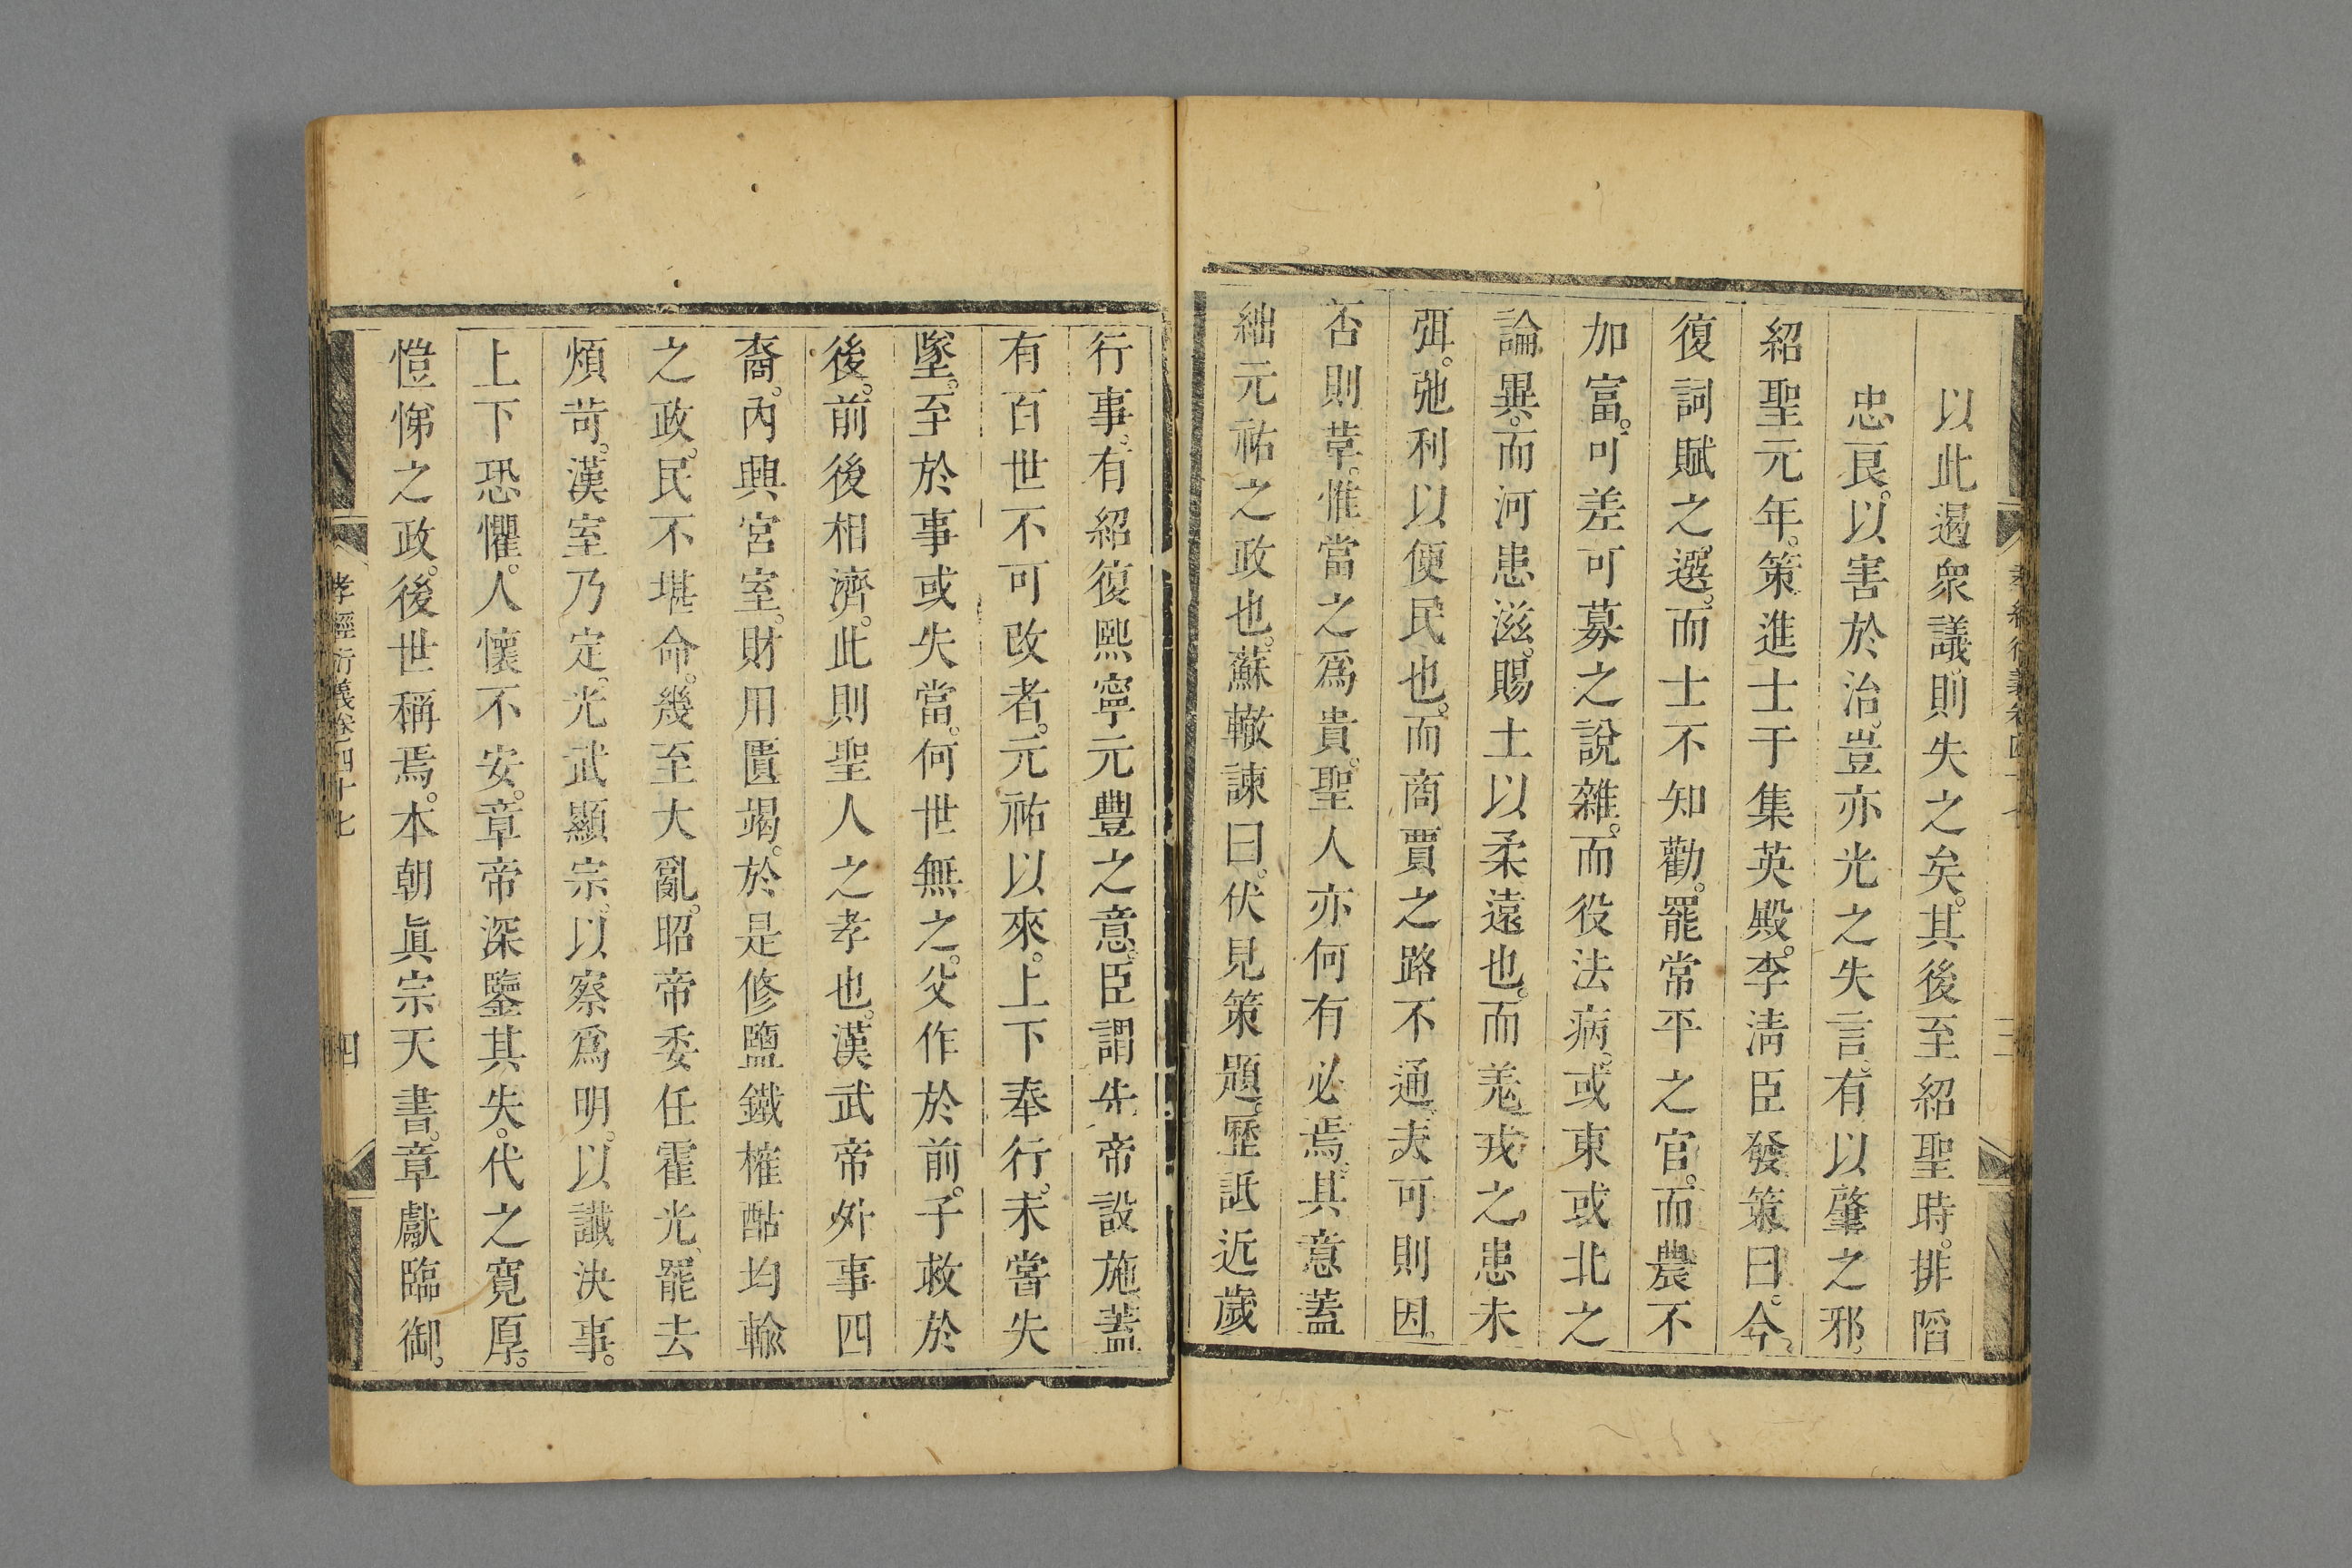 以此遏衆議則失之矣。其後至紹聖時。排䧟
忠良。以害於治。豈亦光之失言。有以肇之邪。
紹聖元年。策進士于集英殿。李淸臣發策曰。今
復詞賦之選。而士不知勸。罷常平之官。而農不
加富。可差可募之說雜。而役法病。或東或北之
論異。而河患滋。賜土以柔遠也。而羗戎之患未
弭。弛利以便民也。而商賈之路不通。夫可則因。
否則革。惟當之爲貴。聖人亦何有必焉。其意蓋
絀元祐之政也。蘇轍諫曰。伏見策題。歷詆近歲
行事。有紹復熙寧元豐之意。臣謂先帝設施。蓋
有百世不可改者。元祐以來。上下奉行。未嘗失
墜。至於事或失當。何世無之。父作於前。子救於
後。前後相濟。此則聖人之孝也。漢武帝外事四
裔。內興宮室。財用匱竭。於是修鹽鐵榷酤均輸
之政。民不堪命。幾至大亂。昭帝委任霍光、罷去
煩苛。漢室乃定。光武顯宗。以察爲明。以讖決事。
上下恐懼。人懷不安。章帝深鑒其失。代之寬厚。
愷悌之政。後世稱焉。本朝眞宗天書。章獻臨御。
孝經衍義卷四十七 四